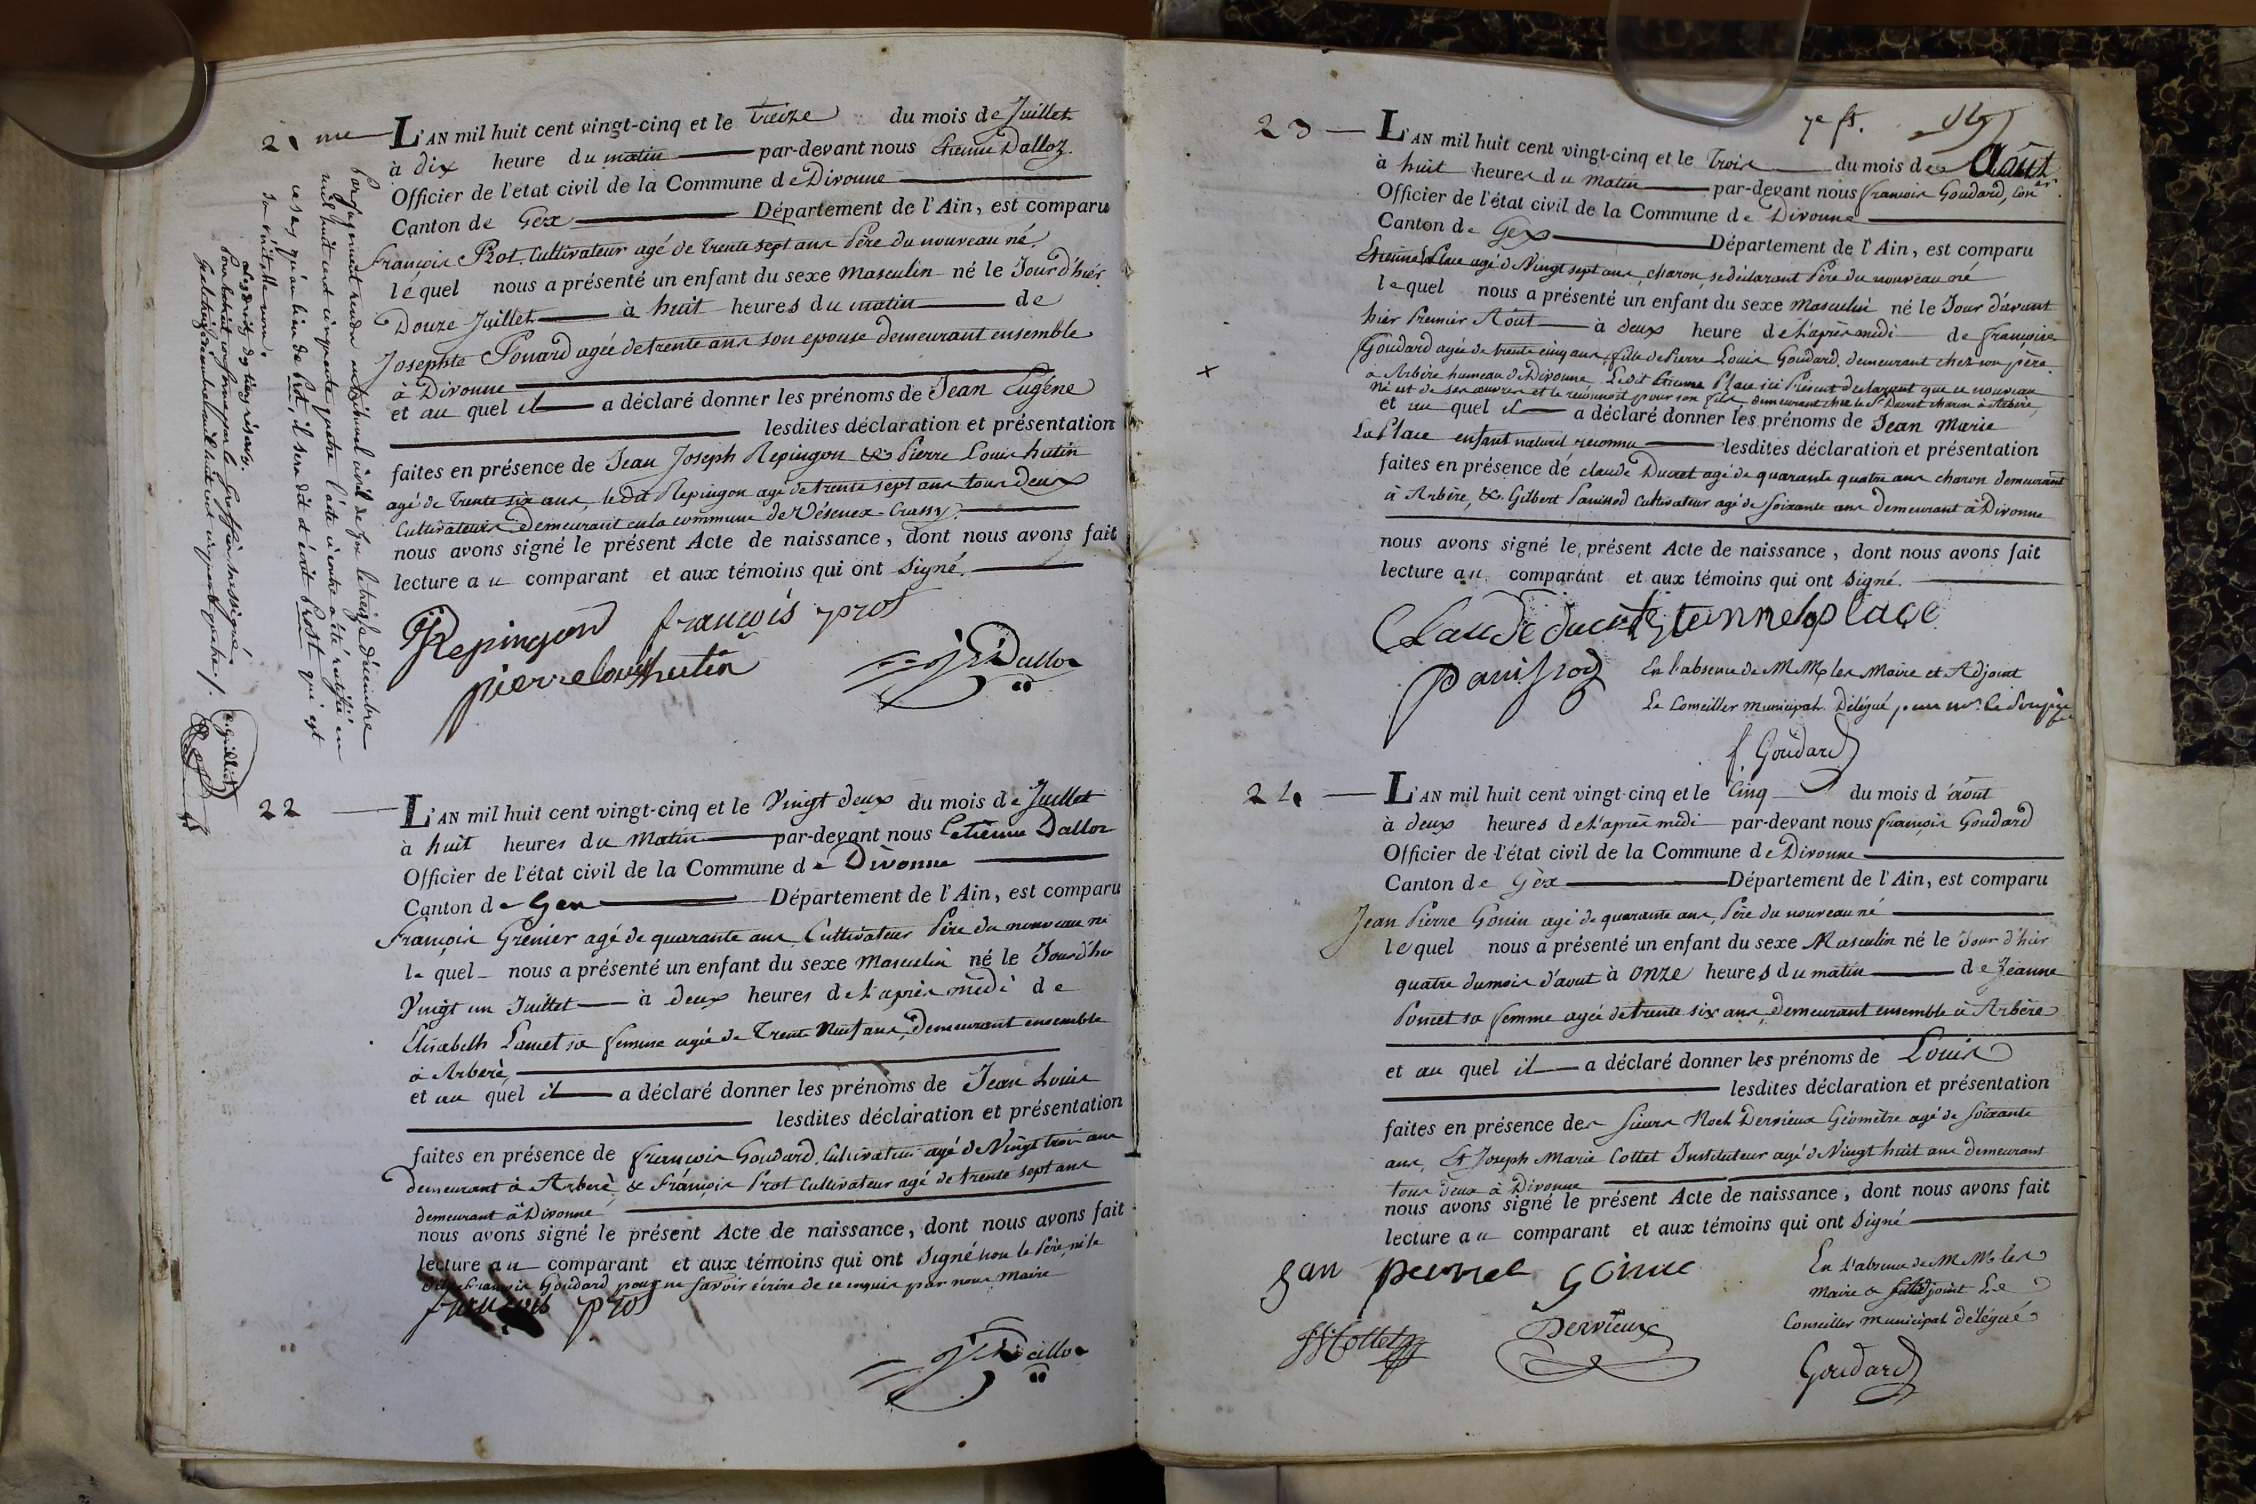 21 me L'AN mil huit cent vingt-cinq et le treize du mois de Juillet
à dix heure du matin par-devant nous Etienne Dalloz
Officier de l'état civil de la Commune de Divonne
Canton de Gex Département de l'Ain, est comparu
François Prot Cultivateur agé de trente sept ans Père du nouveau né
lequel nous a présenté un enfant du sexe Masculin né le Jour d'hiér
Douze Juillet à huit heures du matin de
Josephte Ponard agée de trente ans son epouse demeurant ensemble
à Divonne
et au quel il a déclaré donner les prénoms de Jean Eugéne
lesdites déclaration et présentation
faites en présence de Jean Joseph Repingon & Pierre Louis hutin
agé de trente six ans, le dit Repingon agé de trente sept ans tous deux
Cultivateurs Demeurant en la commune de Vésenex-Crassy.
nous avons signé le présent Acte de naissance, dont nous avons fait
lecture au comparant et aux témoins qui ont Signé.
JJRepingon françois prot
pierre louis hutin Dalloz
Par jugement rendu au tribunal civil de Gex le treize décembre
mil huit cent cinquante quatre l'acte ci contre a été rectifié en
ce sens qu'au lieu de Prot, il sera dit et écrit Prost qui est
son véritable nom.
Les droits des tiers réservés.
Pour extrait conforme par le Greffier soussigné.
22 L'AN mil huit cent vingt-cinq et le Vingt deux du mois de Juillet
à huit heures du Matin par-devant nous Etienne Dalloz
Officier de l'état civil de la Commune de Divonne
Canton de Gex Département de l'Ain, est comparu
François Grenier agé de quarante ans Cultivateur Père du nouveau né
le quel nous a présenté un enfant du sexe Masculin né le Jour d'hier
Vingt un Juillet à deux heures de l'après midi de
Elisabeth Lancet sa femme agée de Trente Neuf ans, Demeurant ensemble
à Arbère
et au quel il a déclaré donner les prénoms de Jean Louis
lesdites déclaration et présentation
faites en présence de François Goudard, Cultivateur agé de Vingt trois ans
demeurant à Arberè & François Prot Cultivateur agé de trente sept ans
demeurant à Divonne
nous avons signé le présent Acte de naissance, dont nous avons fait
lecture au comparant et aux témoins qui ont Signé non le Père, ni le
dit François Goudard pour ne savoir écrire de ce enquis par nous Maire
françois prot
Dalloz
7e ft.
23 L'AN mil huit cent vingt-cinq et le Trois du mois de Août
à huit heures du Matin par-devant nous François Goudard, Coner
Officier de l'état civil de la Commune de Divonne
Canton de Gex Département de l'Ain, est comparu
Etienne LaPlace agé de Vingt sept ans, charon, se déclarant Père du nouveau né
lequel nous a présenté un enfant du sexe Masculin né le Jour d'avant
hier Premier Août à deux heure de l'après midi de Françoise
Goudard agée de trente cinq ans, fille de Pierre Louis Goudard, demeurant chez son père
à Arbère hameau de Divonne. Ledit Etienne Place ici Présent déclarant que ce nouveau
né est de ses œuvres et le reconnoit pour son fils demeurant chez le Sr Ducret charon à Arbère
et au quel il a déclaré donner les prénoms de Jean Marie
La Place enfant naturel reconnu lesdites déclaration et présentation
faites en présence de claude Ducret agé de quarante quatre ans charon demeurant
à Arbère, & Gilbert Panissod Cultivateur agé de soixante ans demeurant à Divonne
nous avons signé le présent Acte de naissance, dont nous avons fait
lecture au comparant et aux témoins qui ont Signé.
Claude ducret etienne la place
Panissod En l'absence de MM les Maire et Adjoint
Le Conseiller Municipal Délégué
f. Goudard
24 L'AN mil huit cent vingt-cinq et le Cinq du mois d'août
à deux heures de l'après midi par-devant nous François Goudard
Officier de l'état civil de la Commune de Divonne
Canton de Gèx Département de l'Ain, est comparu
Jean Pierre Gonin agé de quarante ans, Père du nouveau né
lequel nous a présenté un enfant du sexe Masculin né le Jour d'hier
quatre du mois d'aout à onze heures du matin de Jeanne
Poncet sa femme agée de trente six ans, demeurant ensemble à Arbère
et au quel il a déclaré donner les prénoms de Louis
lesdites déclaration et présentation
faites en présence des Sieurs Noel Dervieux Géomètre agé de Soixante
ans, Et Joseph Marie Cottet Instituteur agé de Vingt huit ans demeurant
tous deux à Divonne
nous avons signé le présent Acte de naissance, dont nous avons fait
lecture au comparant et aux témoins qui ont Signé
gan pierre Gonin En l'absence de MM les
Maire & Adjoint Le
JMCottet Dervieux Conseiller Municipal délégué
Goudard